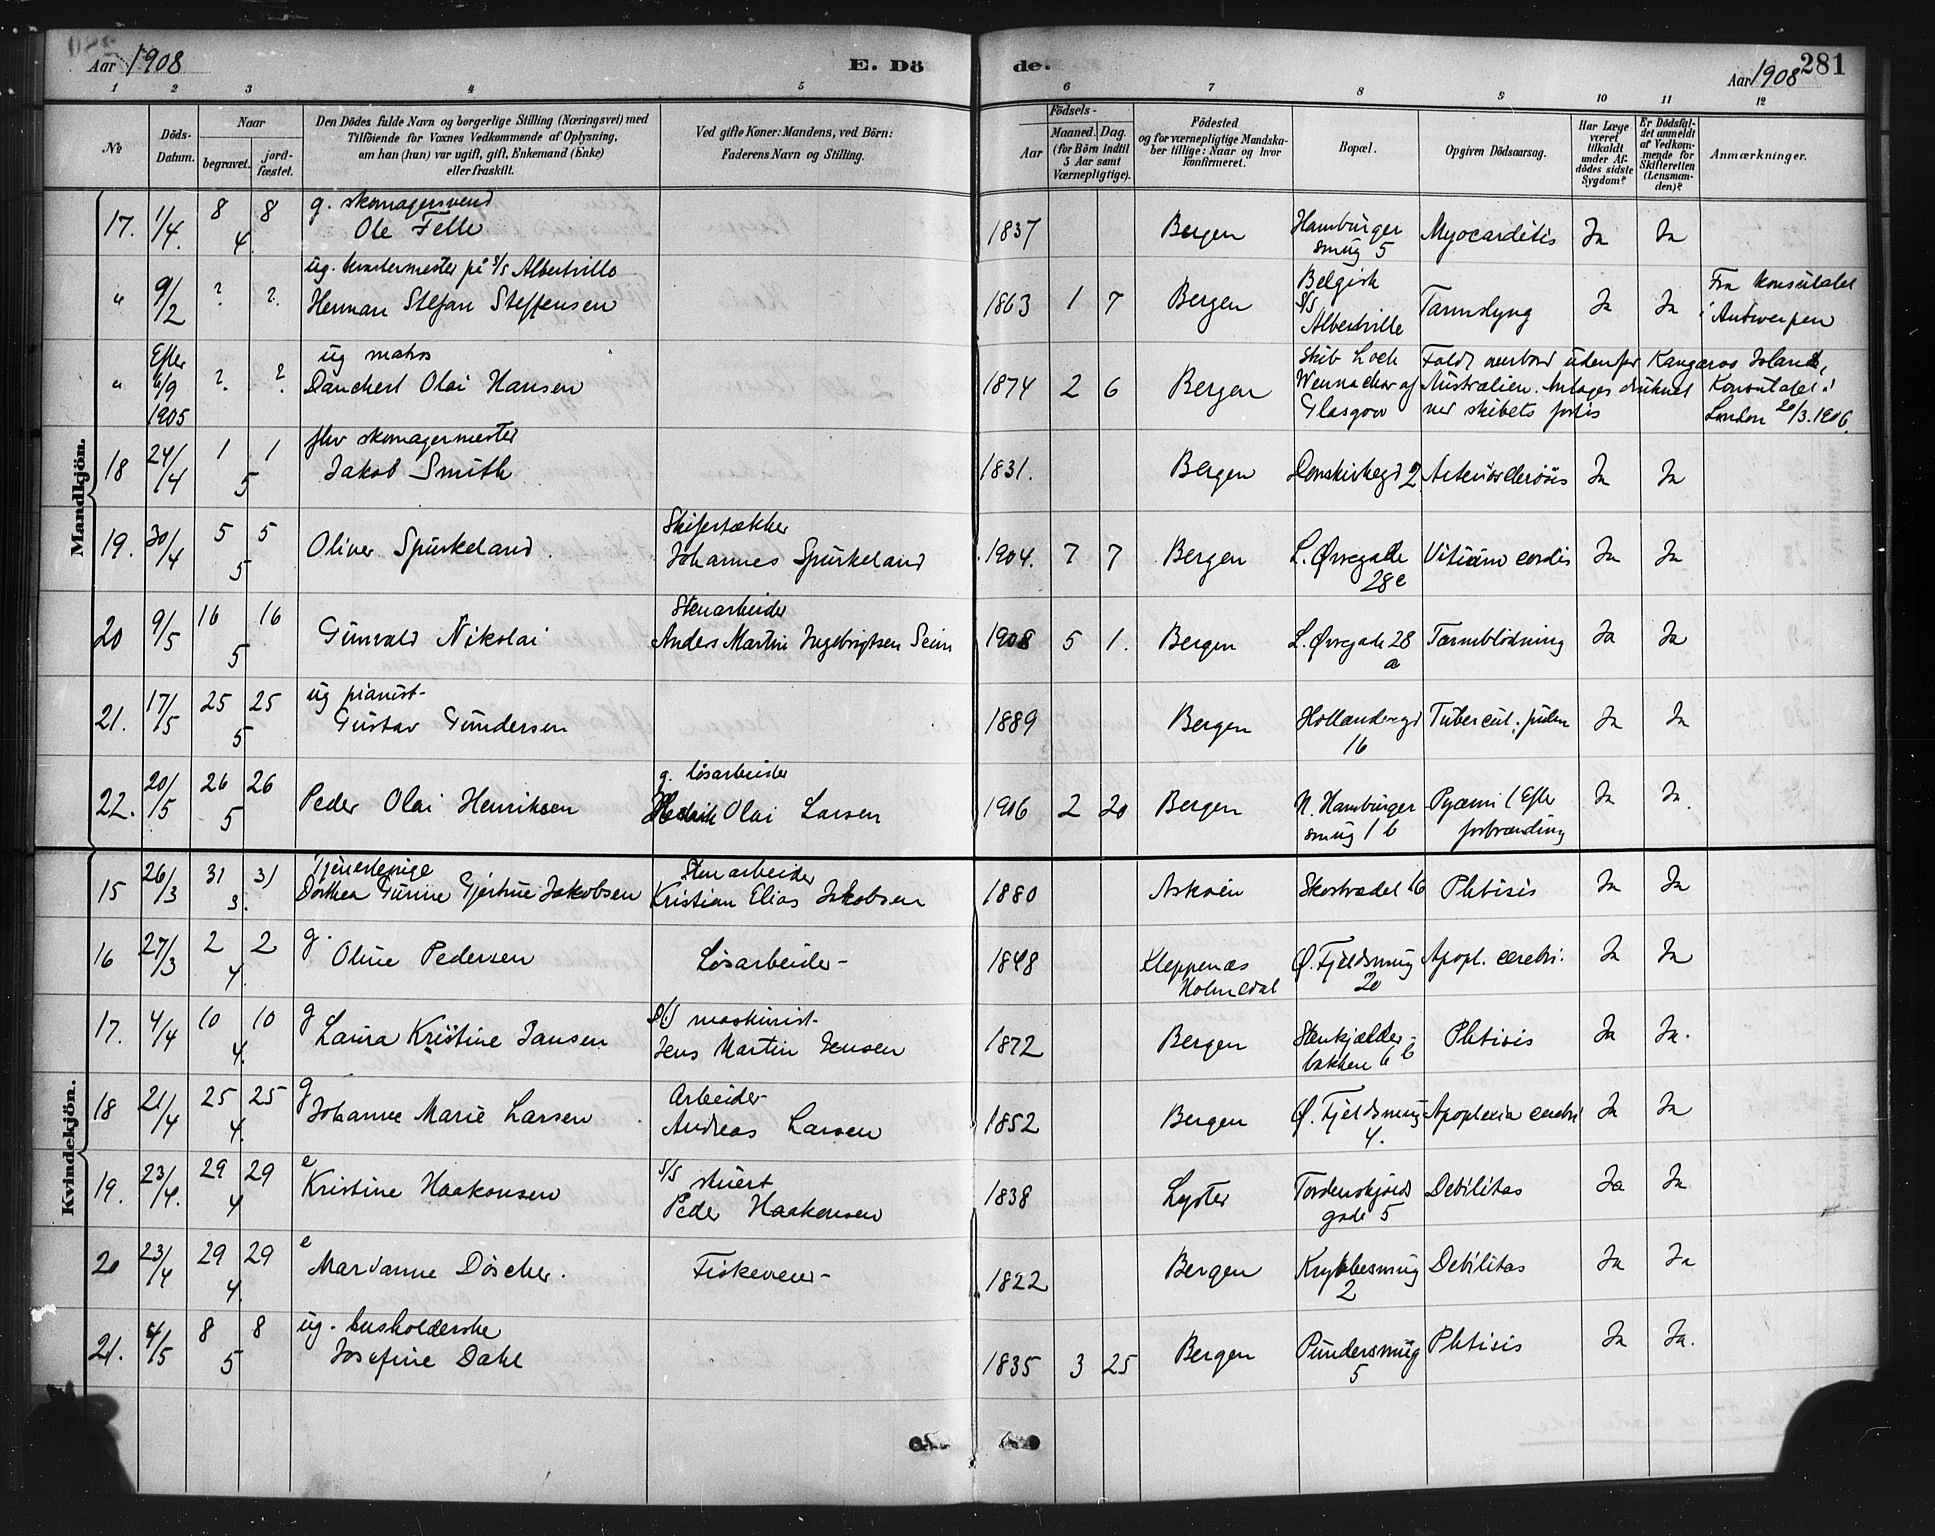 Aar 1908 E. Dö de. Aar 1908 281
1 2 3 4 5 6 7 8 9 10 11 12
№ Döds-Datum. Naar begravet. jord-fæstet. Den Dödes fulde Navn og borgerlige Stilling (Næringsvei) med Tilföiende for Voxnes Vedkommende af Oplysning, om han (hun) var ugift, gift, Enkemand (Enke) eller fraskilt. Ved gifte Koner: Mandens, ved Börn: Faderens Navn og Stilling. Födsels- Aar Maaned. Dag. (for Börn indtil 5 Aar samt Værnepligtige). Födested og for værnepligtige Mandskaber tillige: Naar og hvor konfirmeret. Bopæl. Opgiven Dödsaarsag. Har Læge været tilkaldt under Afdödes sidste Sygdom? Er Dödsfaldet anmeldt af Vedkommende for Skifteretten (Lensmanden)? Anmærkninger.
Mandkjön.
17. 1/4. 8 8 4. g. skomagersvend Ole Felle 1837 Bergen Hamburger smug 5 Myocarditis Ja Ja
" 9/2 ? ? ug. kvartermester på S/S Albertville Herman Stefan Steffensen 1863 1 7 Bergen Belgisk S/S Albertville Tarmslyng Ja Ja Fra Konsulatet i Antwerpen
" Efter 6/9 1905 ? ? ug matros Danckert Olai Hansen 1874 2 6 Bergen Skib Loch Wennachar af Glasgow Faldt overbord udenfor Kangaroo Island, Australien. Antages druknet ner skibets forlis Konsulatet i London 20/3.1906.
18 24/4 1 1 5 fhv skomagermester Jakob Smith 1831. Bergen Domkirkegd 2 Arteriosclerosis Ja Ja
19. 30/4 5 5 5 Oliver Spurkeland. Skifertækker Johannes Spurkeland 1904. 7 7 Bergen L. Øvregade 28c Vitium cordis Ja Ja
20 9/5 16 16 5 Gunvald Nikolai Stenarbeider Anders Martin Ingebrigtsen Seim 1908 5 1. Bergen L. Øvregade 28 a Tarmblödning Ja Ja
21. 17/5 25 25 5 ug pianist- Gustav Gundersen 1889 Bergen Hollendergd 16 Tubercul. pulm Ja Ja
22. 20/5 26 26 5 Peder Olai Henriksen g. løsarbeider Hedrik Olai Larsen 1906 2 20 Bergen N. Hamburger smug 1 b Pyæmi (Efter forbrænding Ja Ja.
Kvindekjön.
15 26/3 31 31 3. Tjenestepige Dorthea Gurine Gjertine Jakobsen Stenarbeider Kristian Elias Jakobsen 1880 Askøen Skostrædet 16 Phtisis Ja Ja
16 27/3 2 2 4. g. Oline Pedersen Løsarbeider- 1848 Kleppenæs Holmedal Ø. Fjeldsmug 20 Apopl. cerebri. Ja Ja
17. 4/4 10 10 4. g Laura Kristine Jansen S/S maskinist- Jens Martin Jensen 1872 Bergen Stenkjelder- bakken 6 b Phtisis Ja Ja.
18 21/4 25 25 4. g Johanne Marie Larsen Arbeider- Andreas Larsen 1852 Bergen Ø. Fjeldsmug 4. Apoplexia cerebri Ja Ja
19. 23/4. 29 29 4 e Kristine Haakonsen S/S stuert Peder Haakonsen 1838 Lyster Tordenskjolds gade 5 Debilitas Ja Ja
20 23/4 29 29 4. e Marianne Döscher. Fiskeveier- 1822 Bergen Krybbesmug 2 Debilitas Ja Ja
21. 4/5 8 8 5 ug. husholderske Josefine Dahl 1835 3 25 Bergen Pundersmug 5 Phtisis Ja Ja.